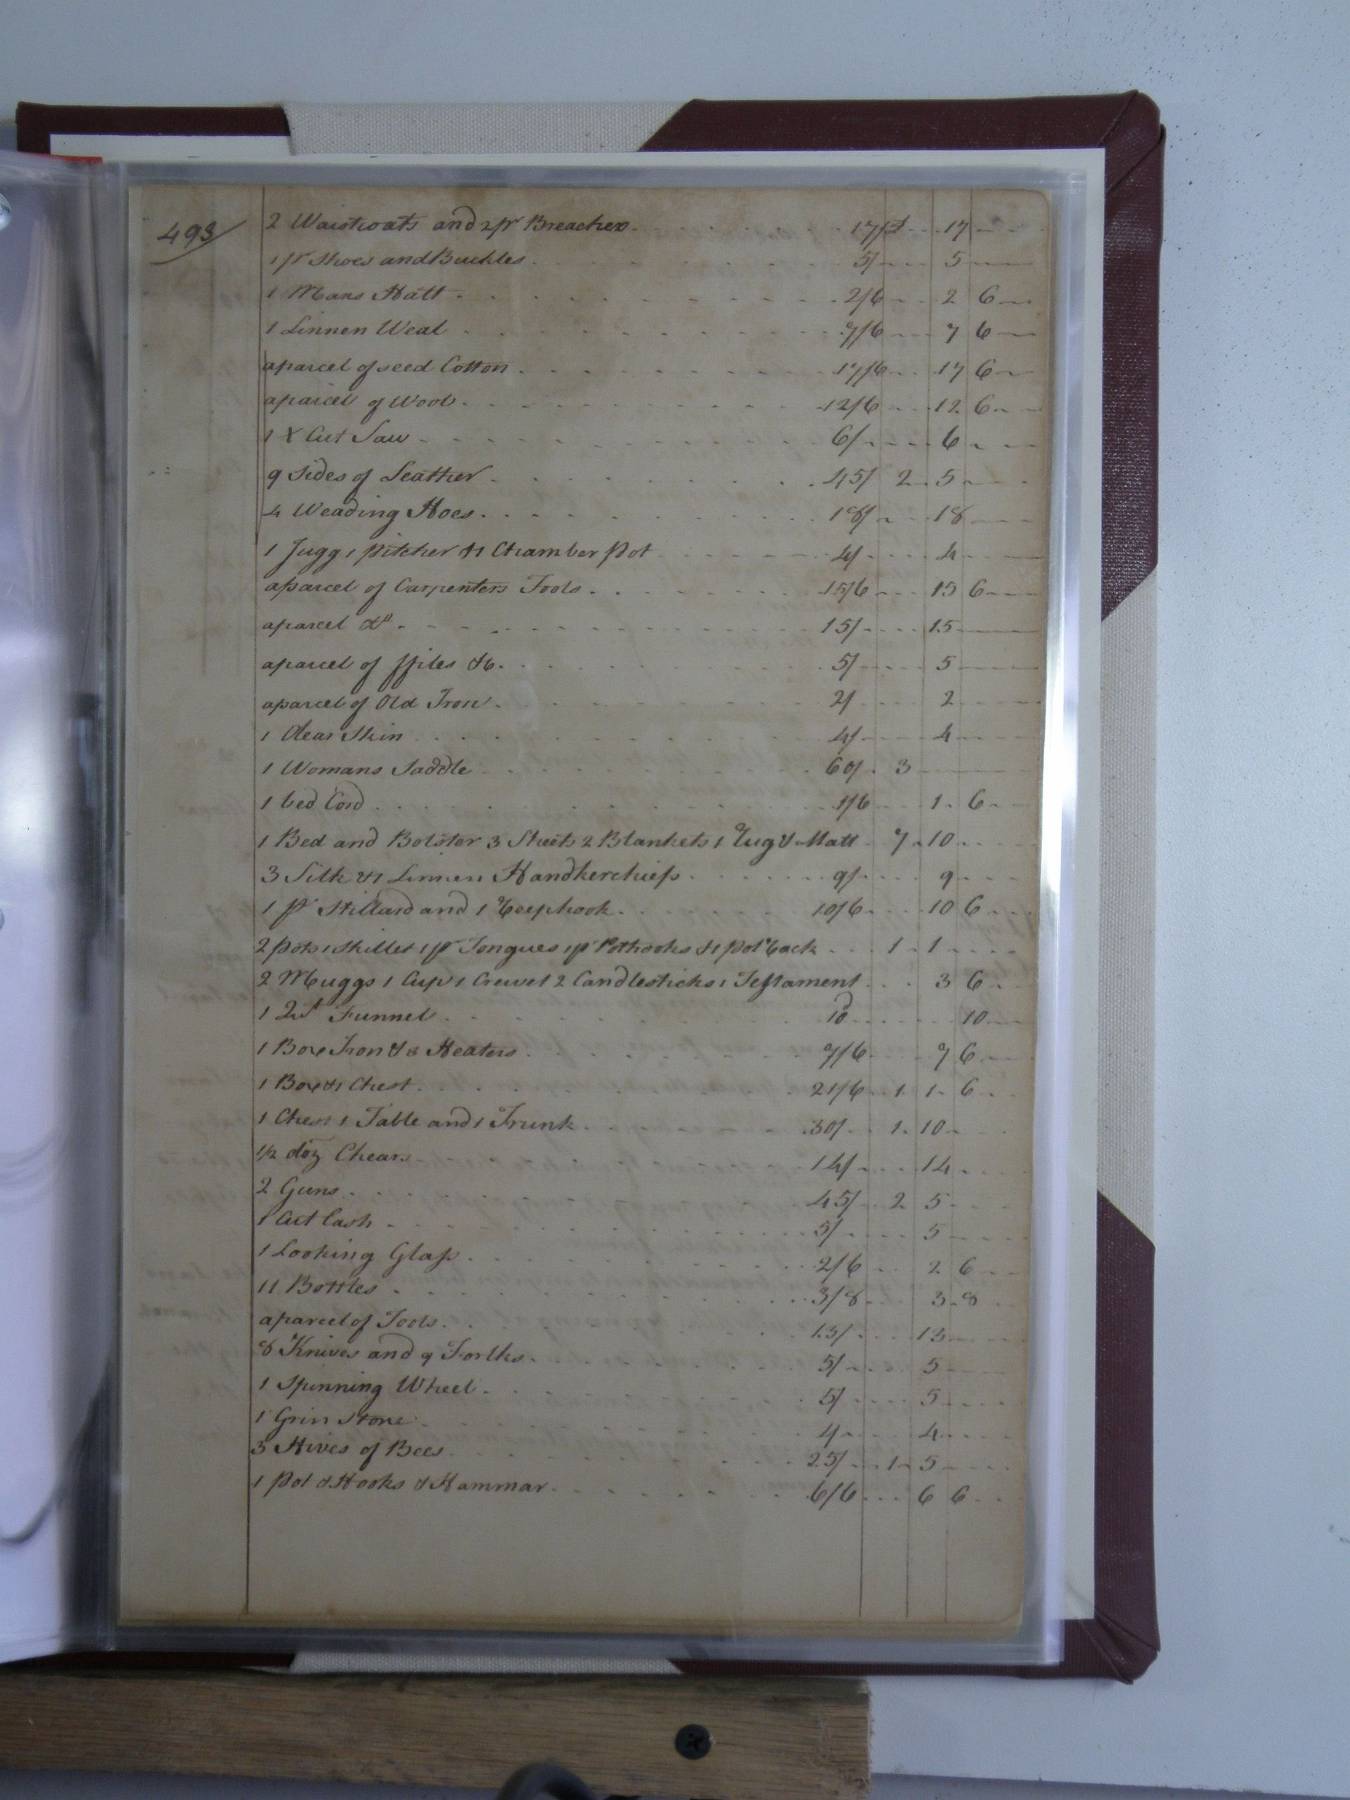 493
2 Waistcoats and 2 pr Breaches. 17/ £ 17
1 pr Shoes and Buckles 5/ 5
1 Mans Hatt 2/6 2 6
1 Linnen Weal 7/6 7 6
aparcel of seed Cotton 17/6 17 6
aparcel of Wool 12/6 12 6
1 X Cut Saw 6/ 6
9 Sides of Leather 45/ 2 5
4 Weading Hoes 18/ 18
1 Jugg 1 pitcher & 1 Chamber Pot 4/ 4
aparcel of Carpenters Tools 15/6 15 6
aparcel do 15/ 15
aparcel of ffiles &c 5/ 5
aparcel of Old Iron 2/ 2
1 Dear Skin 4/ 4
1 Womans Saddle 60/ 3
1 bed Cord 1/6 1 6
1 Bed and Bolster 3 Sheets 2 Blankets 1 Rug & Matt 7 10
3 Silk & 1 Linnen Handkerchiefs 9/ 9
1 pr Stillard and 1 Reephook 10/6 10 6
2 pots 1 Skillet 1 pr Tongues 1 pr Pothooks & 1 pot rack 1 1
2 Muggs 1 Cup 1 Crewet 2 Candlesticks 1 Testament 3 6
1 Funnel 10d 10
1 Box Iron & Heaters 7/6 7 6
1 Box & 1 Chest 21/6 1 1 6
1 Chest 1 Table and 1 Trunk 30/ 1 10
1/2 doz Chears 14/ 14
2 Guns 45/ 2 5
1 Cutlash 5/ 5
1 Looking Glass 2/6 2 6
11 Bottles 3/8 3 8
aparcel of Tools 13/ 13
8 Knives and 9 Forlks 5/ 5
1 Spinning Wheel 5/ 5
1 Grin Stone 4 4
3 Hives of Bees 25/ 1 5
1 Pot & Hooks & Hammar 6/6 6 6